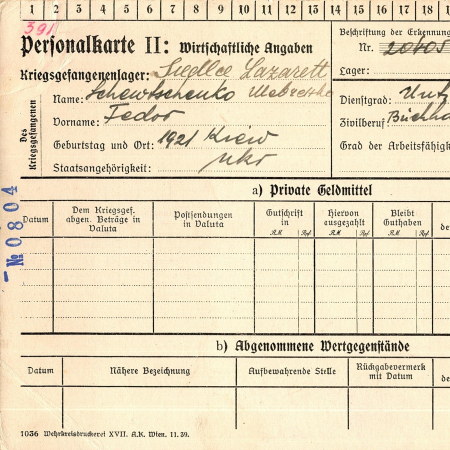 1 2 3 4 5 6 7 8 9 10 11 12 13 14 15 16 17 18
391
Personalkarte II: Wirtschaftliche Angaben
Beschriftung der Erkennung
Nr. 20405
Kriegsgefangenenlager: Siedlce Lazarett
Lager:
Des Kriegsgefangenen
Name: Schewtschenko
Dienstgrad: Unt
Vorname: Fedor
Zivilberuf Buchha
Geburtstag und Ort: 1921 Kiew
Grad der Arbeitsfähigk
Staatsangehörigkeit: ukr
№ 0804
a) Private Geldmittel
Datum
Dem Kriegsgef. abgen. Beträge in Valuta
Postsendungen in Valuta
Gutschrift in
RM Rpf
Hiervon ausgezahlt
RM Rpf
Bleibt Guthaben
RM Rpf
de
b) Abgenommene Wertgegenstände
Datum
Nähere Bezeichnung
Aufbewahrende Stelle
Rückgabevermerk mit Datum
de
1036 Wehrkreisdruckerei XVII. A.K. Wien. 11.39.